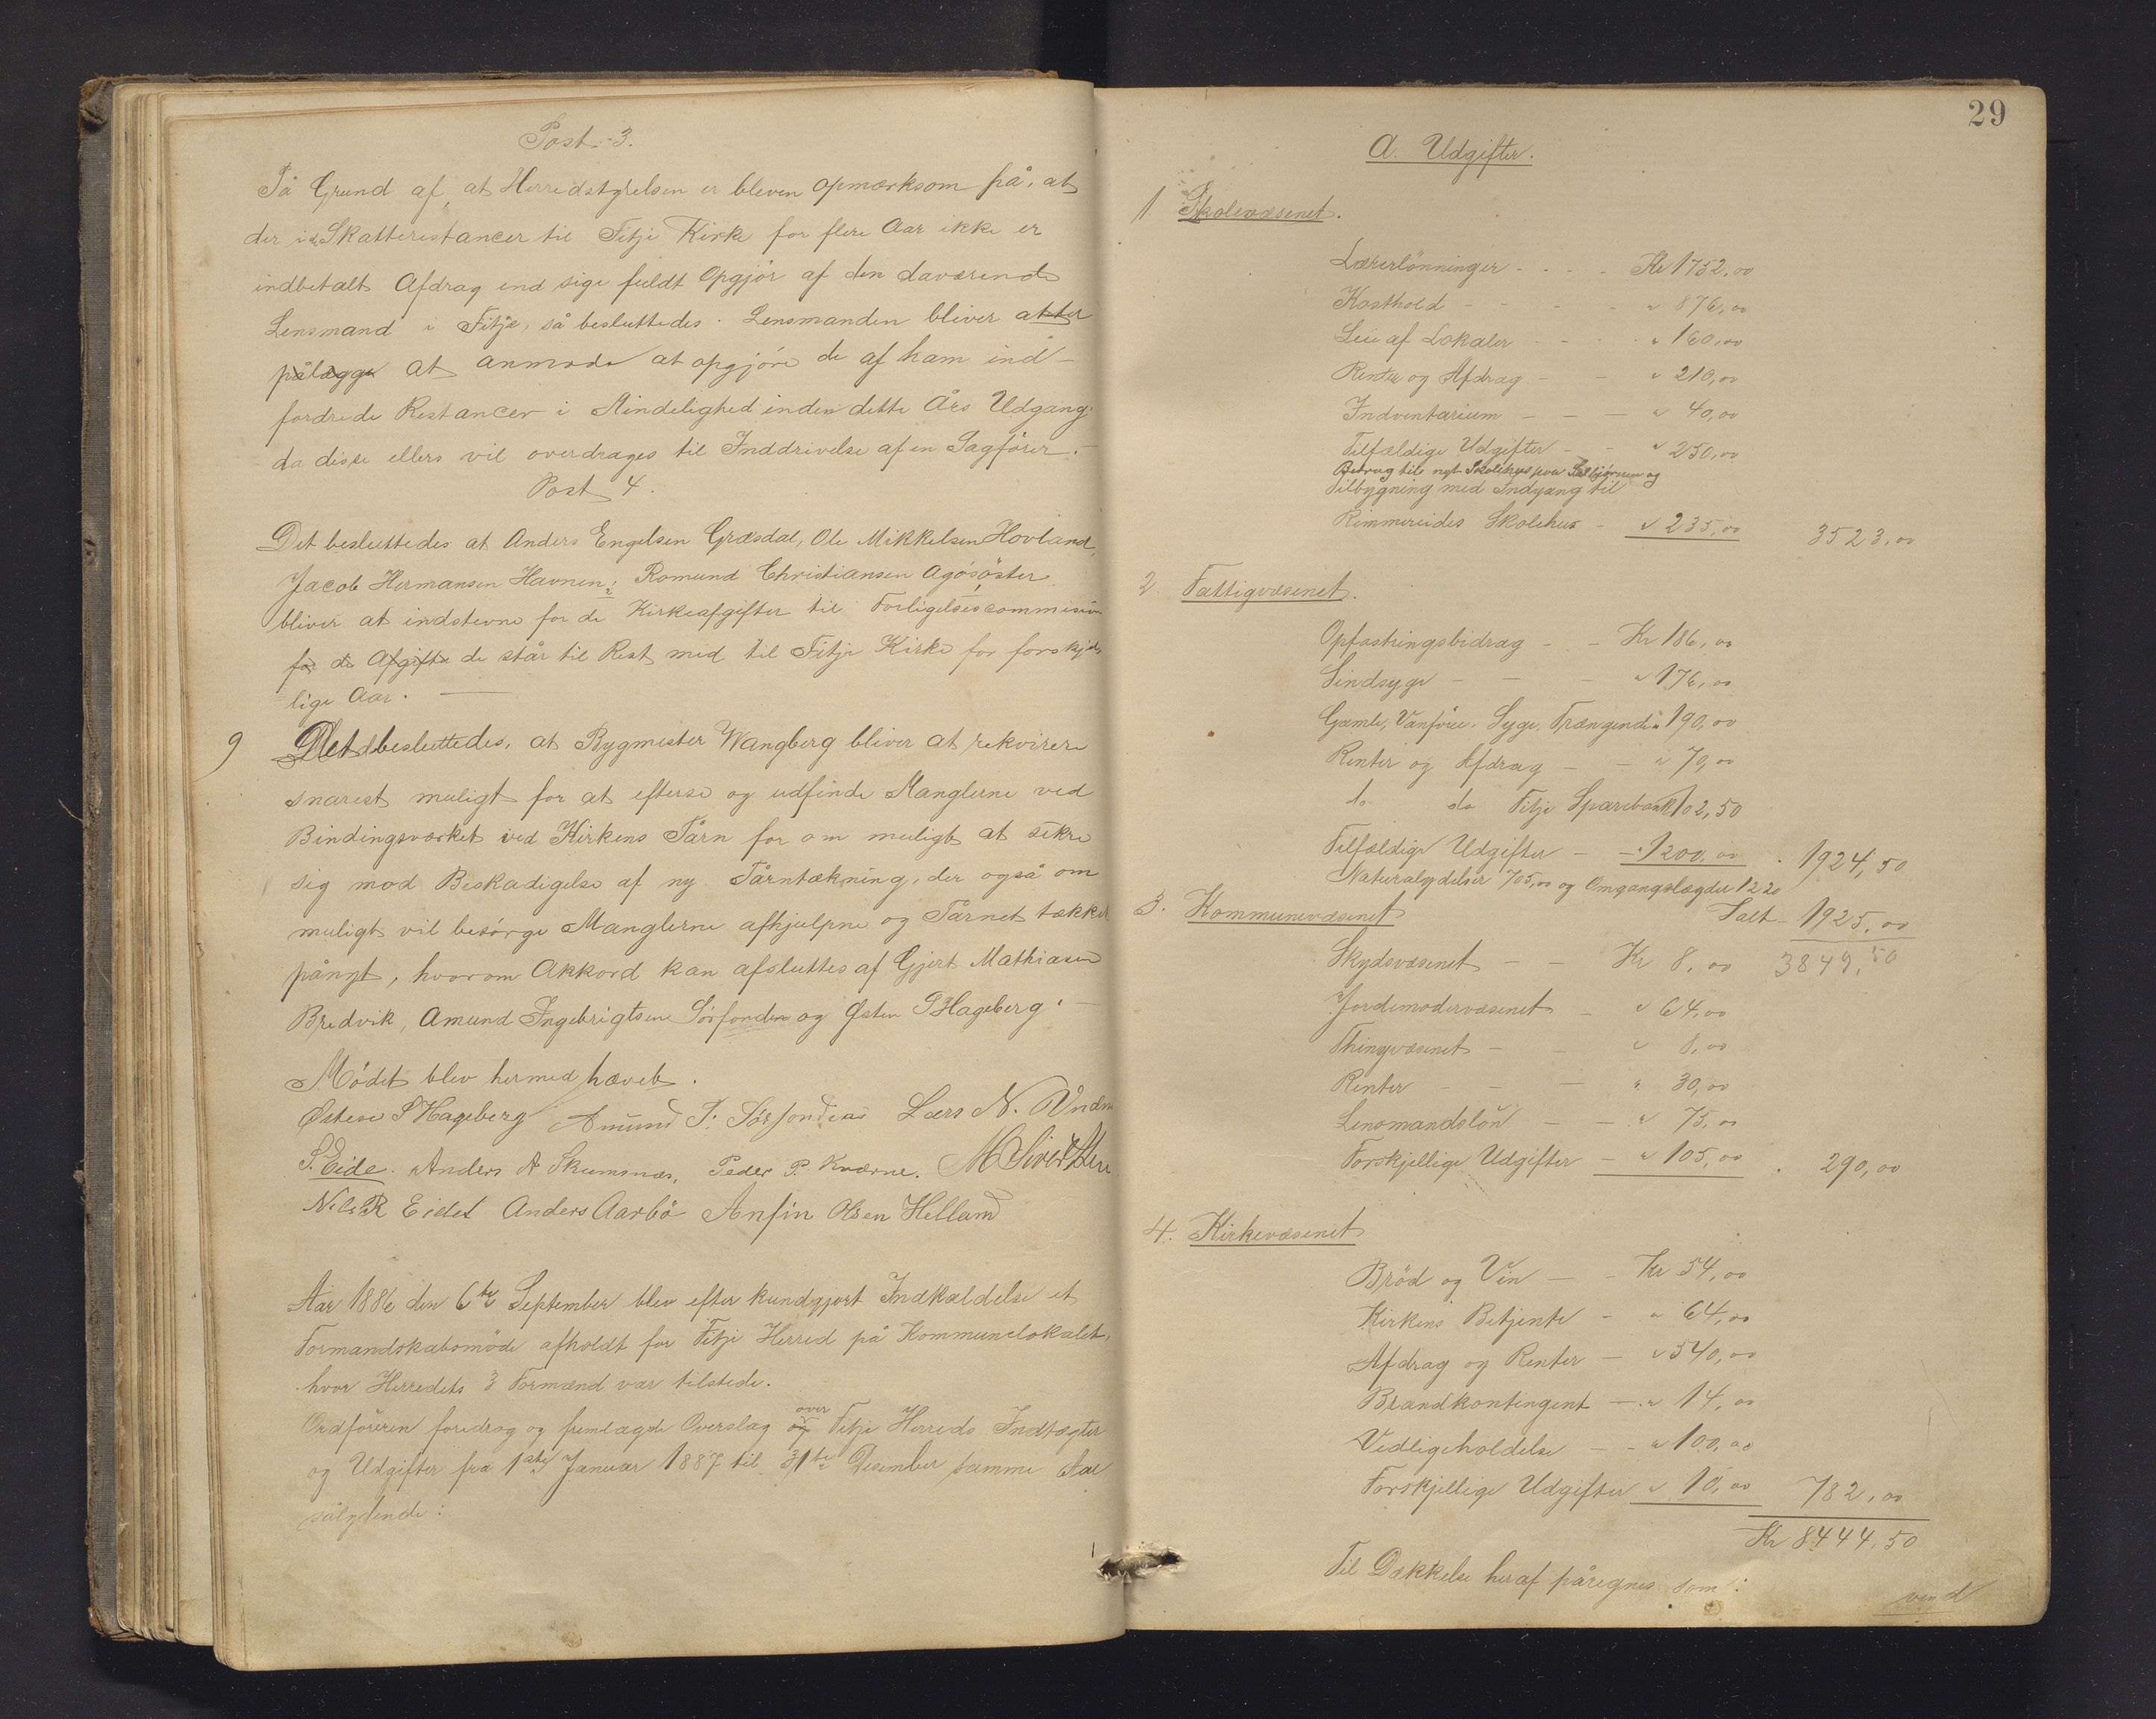 Post 3.
På Grund af, at Herredstyrelsen er bleven opmærksom på, at
der i Skatterestancer til Fitje Kirke for flere Aar ikke er
indbetalt Afdrag end sige fuldt Opgjör af den daværende
Lensmand i Fitje, så besluttedes. Lensmanden bliver atter
pålægge at anmode at opgjöre de af ham ind-
fordrede Restancer i Mindelighed inden dette Års Udgang,
da disse ellers vil overdrages til Inddrivelse af en Sagförer. –
Post 4.
Det besluttedes at Anders Engelsen Græsdal, Ole Mikkelsen Hovland,
Jacob Hermansen Havnen, Romund Christiansen Agösöster
bliver at indstevne for de Kirkeafgifter til Forligelsescommision
for de Afgifte de står til Rest med til Fitje Kirke for forskjel-
lige Aar. –
9 Det besluttedes, at Bygmester Wangberg bliver at rekvirere
snarest muligt for at efterse og udfinde Manglerne ved
Bindingsværket ved Kirkens Tårn for om muligt at sikre
sig mod Beskadigelse af ny Tårntækning, der også om
muligt vil besörge Manglerne afhjulpne og Tårnet tækket
pånyt, hvorom Akkord kan afsluttes af Gjert Mathiasen
Bredvik, Amund Ingebrigtsen Sörfonden og Østen P Hageberg. –
Mödet blev hermed hævet.
Østen P Hageberg Amund I. Sörfonden Lars N.
S. Eide. Anders A Skumsnes, Peder P. Kværne. M Sivertsen
Nils R Eidet Anders Aarbö Anfin Olsen Helland
Aar 1886 den 6te September blev efter kundgjort Indkaldelse et
Formandskabsmöde afholdt for Fitje Herred på Kommunelokalet,
hvor Herredets 3 Formænd var tilstede.
Ordföreren foredrog og fremlagde Overslag og over Fitje Herreds Indtægter
og Udgifter fra 1ste Januar 1887 til 31te Desember samme Aar
sålydende:
29
A. Udgifter.
1 Skolevæsenet.
Lærerlönninger - - - Kr 1752,00
Kosthold - - - " 876,00
Leie af Lokaler - - - " 160,00
Renter og Afdrag - - " 210,00
Indventarium - - - " 40,00
Tilfældige Udgifter - - " 250,00
Bidrag til nyt Skolehus paa Selbjörnen og
Tilbygning med Indgang til
Rimmereides Skolehus - " 235,00 3523,00
2 Fattigvæsenet.
Opfostringsbidrag - - Kr 186,00
Sindsyge - - - " 176,00
Gamle, Vanföre, Syge, Trængende " 190,00
Renter og Afdrag - - " 70,00
do do Fitje Sparebank 102,50
Tilfældige Udgifter - - " 1200,00 . 1924,50
Naturalydelser 705,00 og Omgangslægder 1220
Ialt 1925,00
3. Kommunevæsenet
Skydsvæsenet - - Kr 8,00 3849,50
Jordemodervæsenet - " 64,00
Thingvæsenet - - " 8,00
Renter - - - " 30,00
Lensmandslön - - " 75,00
Forskjellige Udgifter - " 105,00 . 290,00
4. Kirkevæsenet
Bröd og Vin - - Kr 54,00
Kirkens Betjente - " 64,00
Afdrag og Renter - " 540,00
Brandkontingent - " 14,00
Vedligeholdelse - - " 100,00
Forskjellige Udgifter " 10,00 782,00
Kr 8444,50
Til Dækkelse heraf påregnes som:
vend